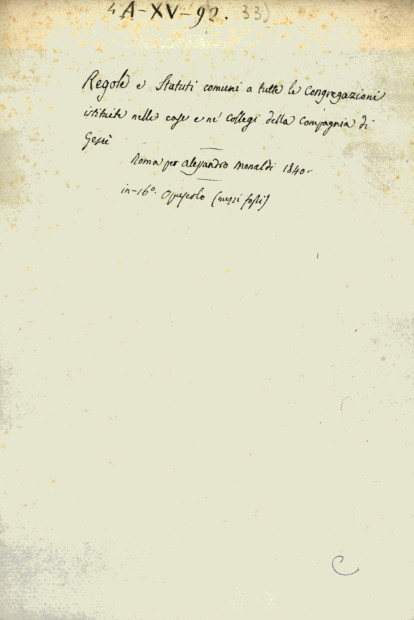 4 A-XV-92. 33)
Regole e Statuti comuni a tutte le Congregazioni
istituite nelle case e ne' Collegi della Compagnia di
Gesù
Roma per Alessandro Monaldi 1840-
in-16°. Opuscolo (mezzi fogli)